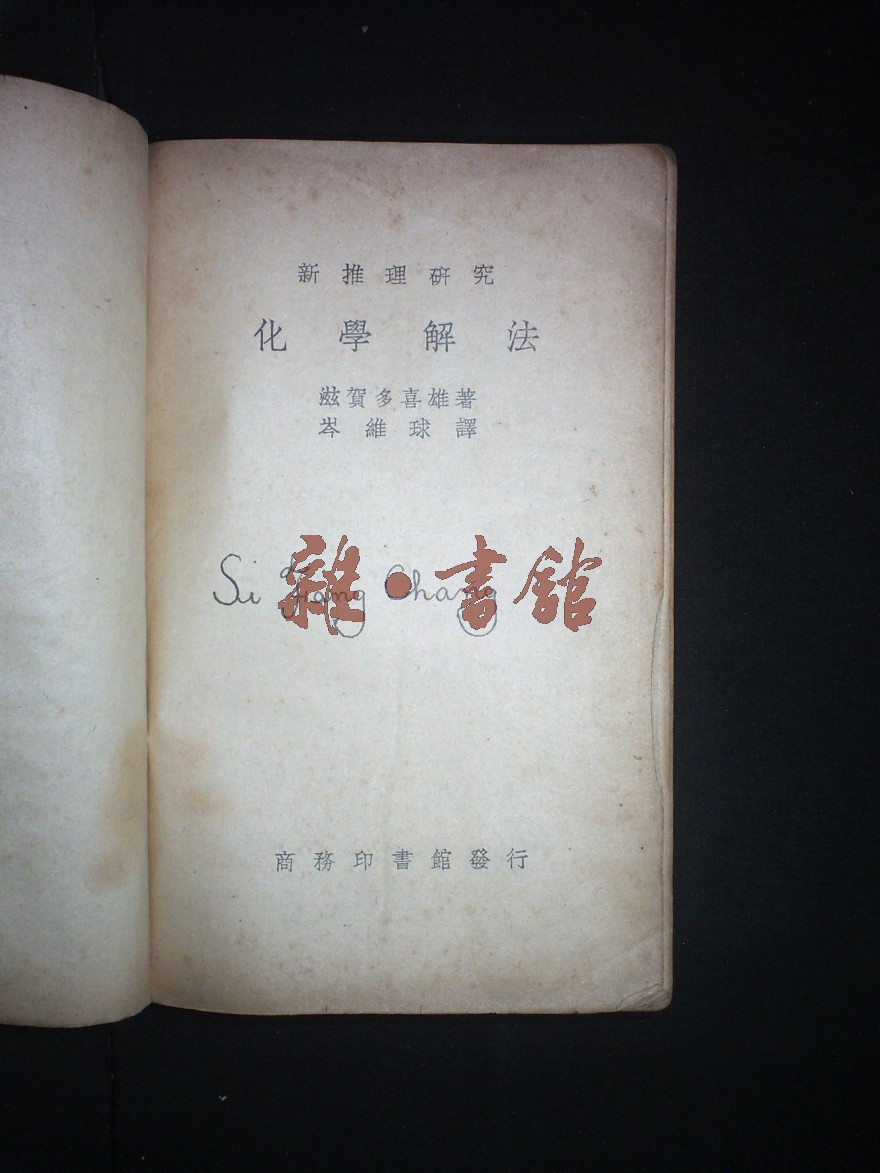 新推理研究
化學解法
滋賀多喜雄著
岑維球譯
Si Chang
雜·書館
商務印書館發行